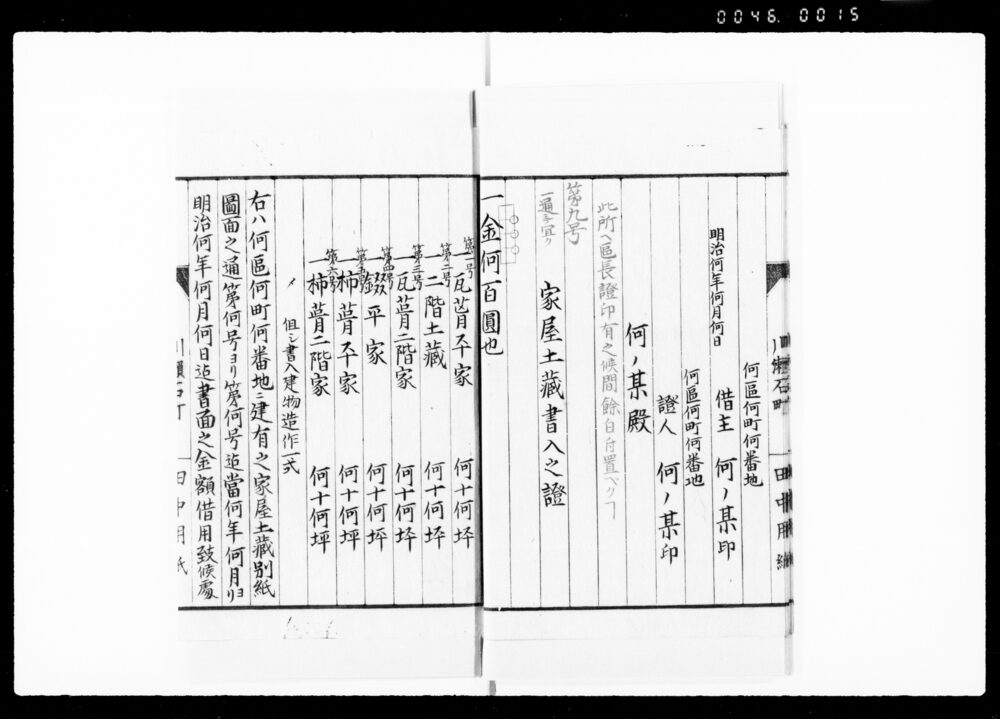 0046.0015
川瀬石町 田中用紙
何區何町何番地
借主 何ノ某印
明治何年何月何日
何區何町何番地
證人 何ノ某印
何ノ某殿
此所ヘ區長證印有之候間餘白ヲ置ベクフ
第九号
家屋土藏書入之證
一金何百圓也
第一号
一瓦葺平家 何十何坪
第二号
一二階土藏 何十何坪
第三号
一瓦葺二階家 何十何坪
第四号
一錣平家 何十何坪
第五号
一柿葺平家 何十何坪
第六号
一柿葺二階家 何十何坪
〆 但シ書入建物造作一式
右ハ何區何町何番地ニ建有之家屋土藏別紙
圖面之通第何号ヨリ第何号迠當何年何月ヨリ
明治何年何月何日迠書面之金額借用致候處
川瀬石町 田中用紙